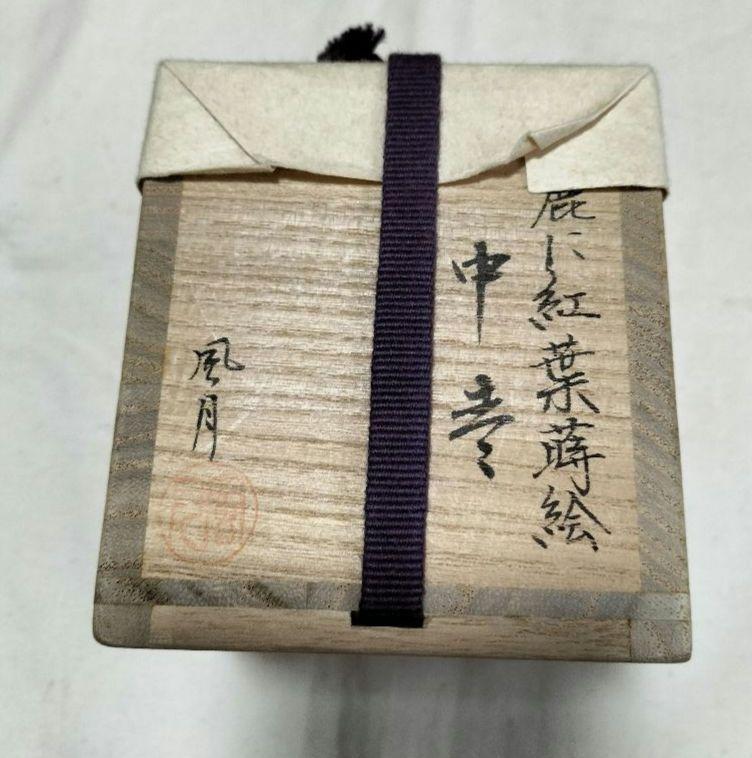 鹿に紅葉蒔絵
中棗
風月